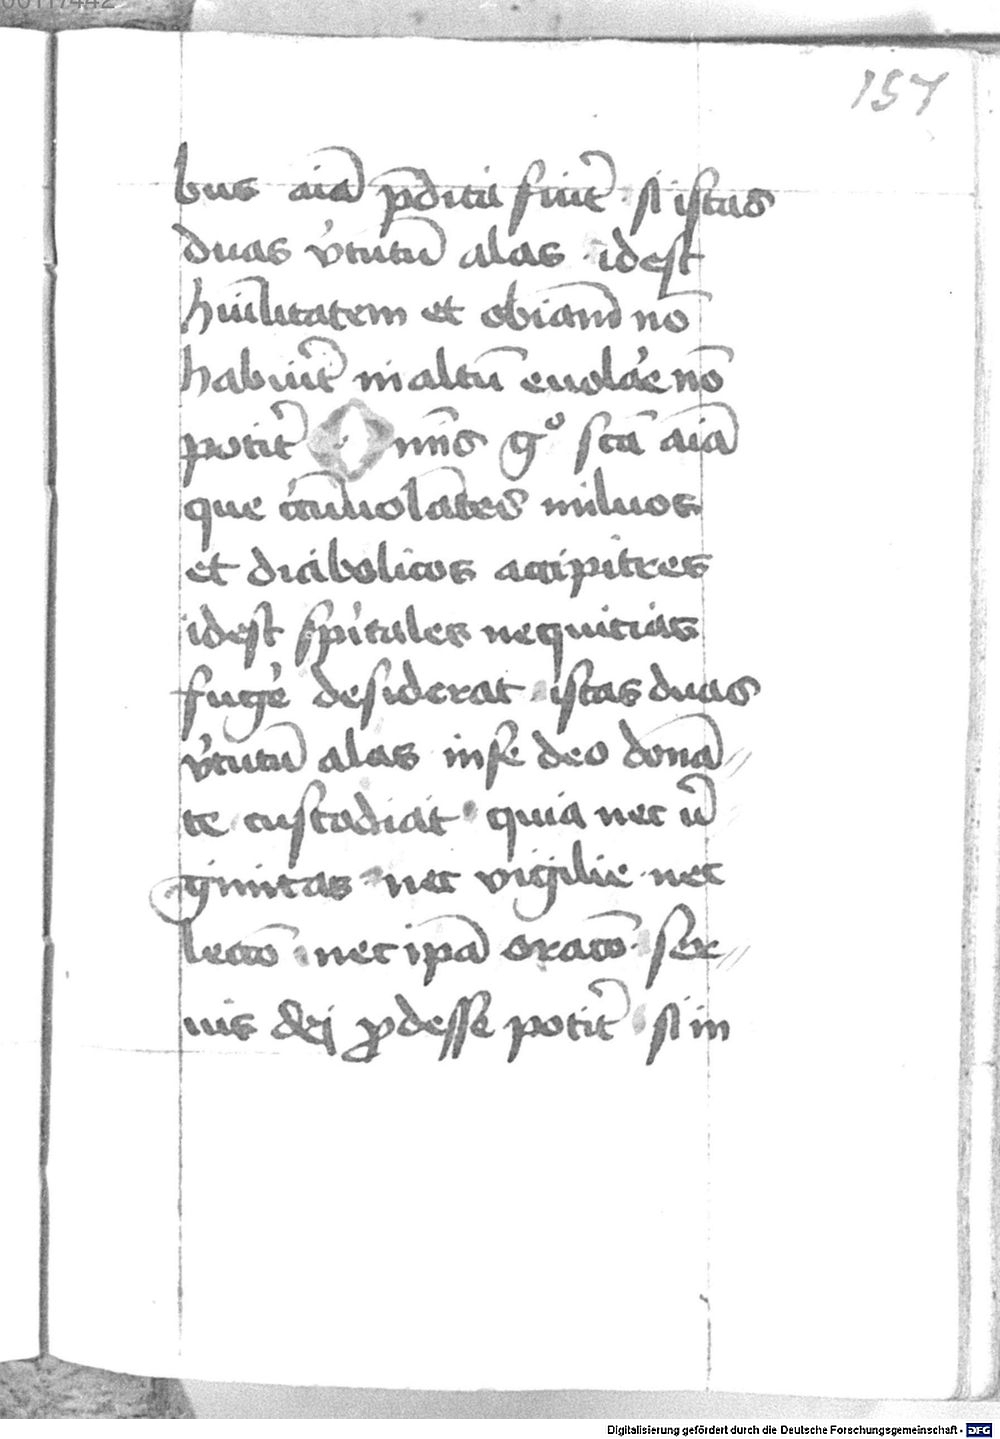 00117442
157
bus aīa p̄dita fuit̾ · si istas
duas v̾tutū alas · idest
hūilitatem et obiam̄ nō
habuit̾ in altū euola̾e nō
potit̾ Omnis gº scā aīa
que circūuolātes miluos
et diabolicos accipitres
idest sp̄itales nequicias
fuge̾ desiderat · istas duas
v̾tutū alas in se deo donā
te custodiat · quia nec u̾
ginitas · nec vigilie · nec
lectō · nec ip̄a oratō · ser
uis dei ꝓdesse potit̾ · si in
Digitalisierung gefördert durch die Deutsche Forschungsgemeinschaft - DFG